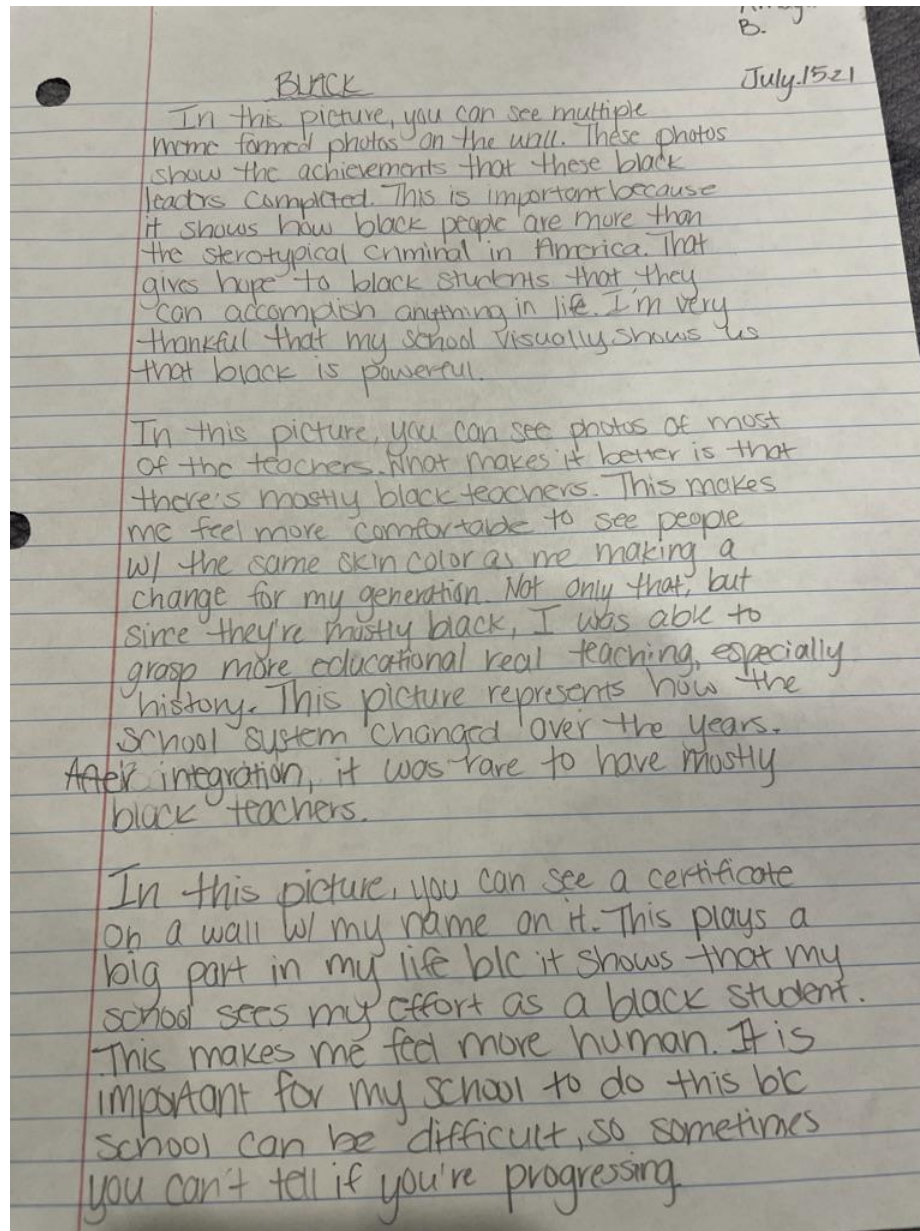 B.
July.15.21
BLACK
In this picture, you can see multiple
meme formed photos on the wall. These photos
show the achievements that these black
leaders completed. This is important because
it shows how black people are more than
the sterotypical criminal in America. That
gives hope to black students that they
can accomplish anything in life. I'm very
thankful that my school visually shows us
that black is powerful.
In this picture, you can see photos of most
of the teachers. What makes it better is that
there's mostly black teachers. This makes
me feel more comfortable to see people
w/ the same skin color as me making a
change for my generation. Not only that, but
since they're mostly black, I was able to
grasp more educational real teaching, especially
history. This picture represents how the
school system changed over the years.
After integration, it was rare to have mostly
black teachers.
In this picture, you can see a certificate
on a wall w/ my name on it. This plays a
big part in my life b/c it shows that my
school sees my effort as a black student.
This makes me feel more human. It is
important for my school to do this b/c
school can be difficult, so sometimes
you can't tell if you're progressing